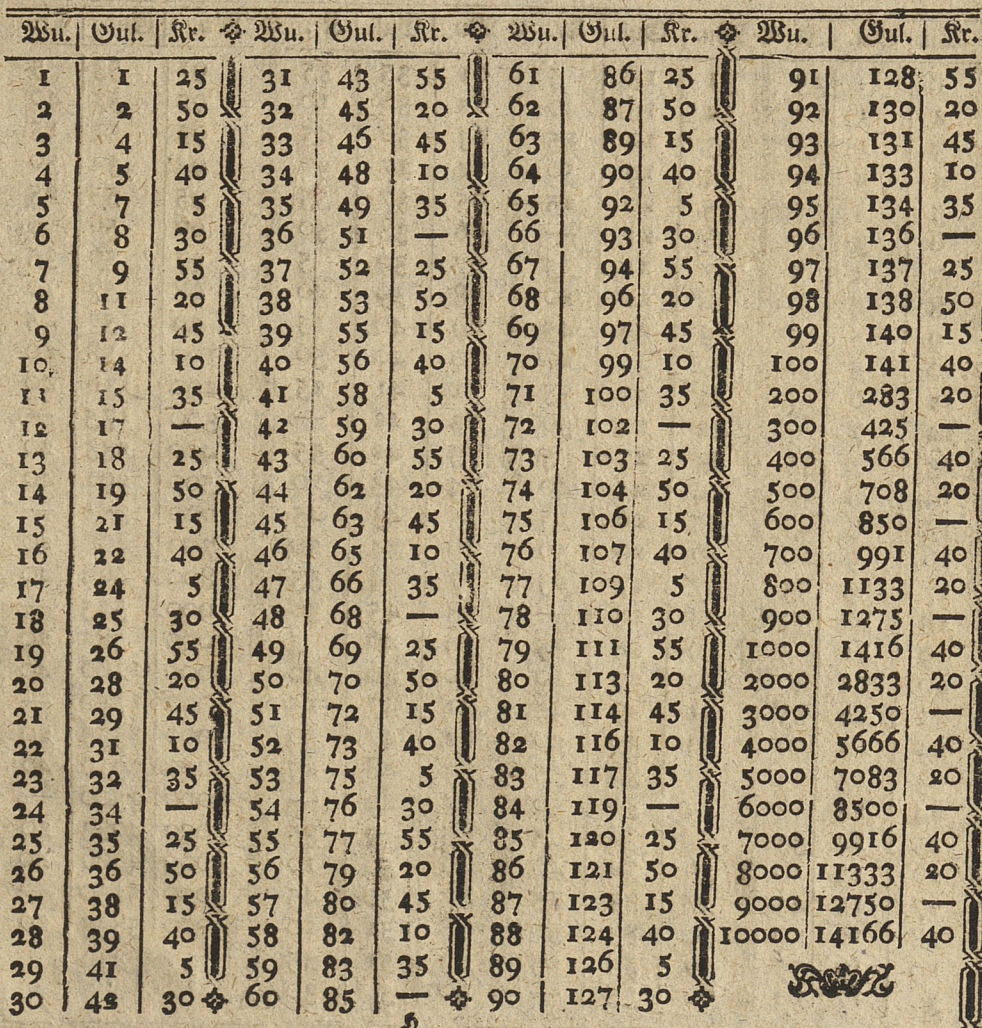 Wu. Gul. Kr. Wu. Gul. Kr. Wu. Gul. Kr. Wu. Gul. Kr.
1 1 25 31 43 55 61 86 25 91 128 55
2 2 50 32 45 20 62 87 50 92 130 20
3 4 15 33 46 45 63 89 15 93 131 45
4 5 40 34 48 10 64 90 40 94 133 10
5 7 5 35 49 35 65 92 5 95 134 35
6 8 30 36 51 — 66 93 30 96 136 —
7 9 55 37 52 25 67 94 55 97 137 25
8 11 20 38 53 50 68 96 20 98 138 50
9 12 45 39 55 15 69 97 45 99 140 15
10 14 10 40 56 40 70 99 10 100 141 40
11 15 35 41 58 5 71 100 35 200 283 20
12 17 — 42 59 30 72 102 — 300 425 —
13 18 25 43 60 55 73 103 25 400 566 40
14 19 50 44 62 20 74 104 50 500 708 20
15 21 15 45 63 45 75 106 15 600 850 —
16 22 40 46 65 10 76 107 40 700 991 40
17 24 5 47 66 35 77 109 5 800 1133 20
18 25 30 48 68 — 78 110 30 900 1275 —
19 26 55 49 69 25 79 111 55 1000 1416 40
20 28 20 50 70 50 80 113 20 2000 2833 20
21 29 45 51 72 15 81 114 45 3000 4250 —
22 31 10 52 73 40 82 116 10 4000 5666 40
23 32 35 53 75 5 83 117 35 5000 7083 20
24 34 — 54 76 30 84 119 — 6000 8500 —
25 35 25 55 77 55 85 120 25 7000 9916 40
26 36 50 56 79 20 86 121 50 8000 11333 20
27 38 15 57 80 45 87 123 15 9000 12750 —
28 39 40 58 82 10 88 124 40 10000 14166 40
29 41 5 59 83 35 89 126 5
30 42 30 60 85 — 90 127 30